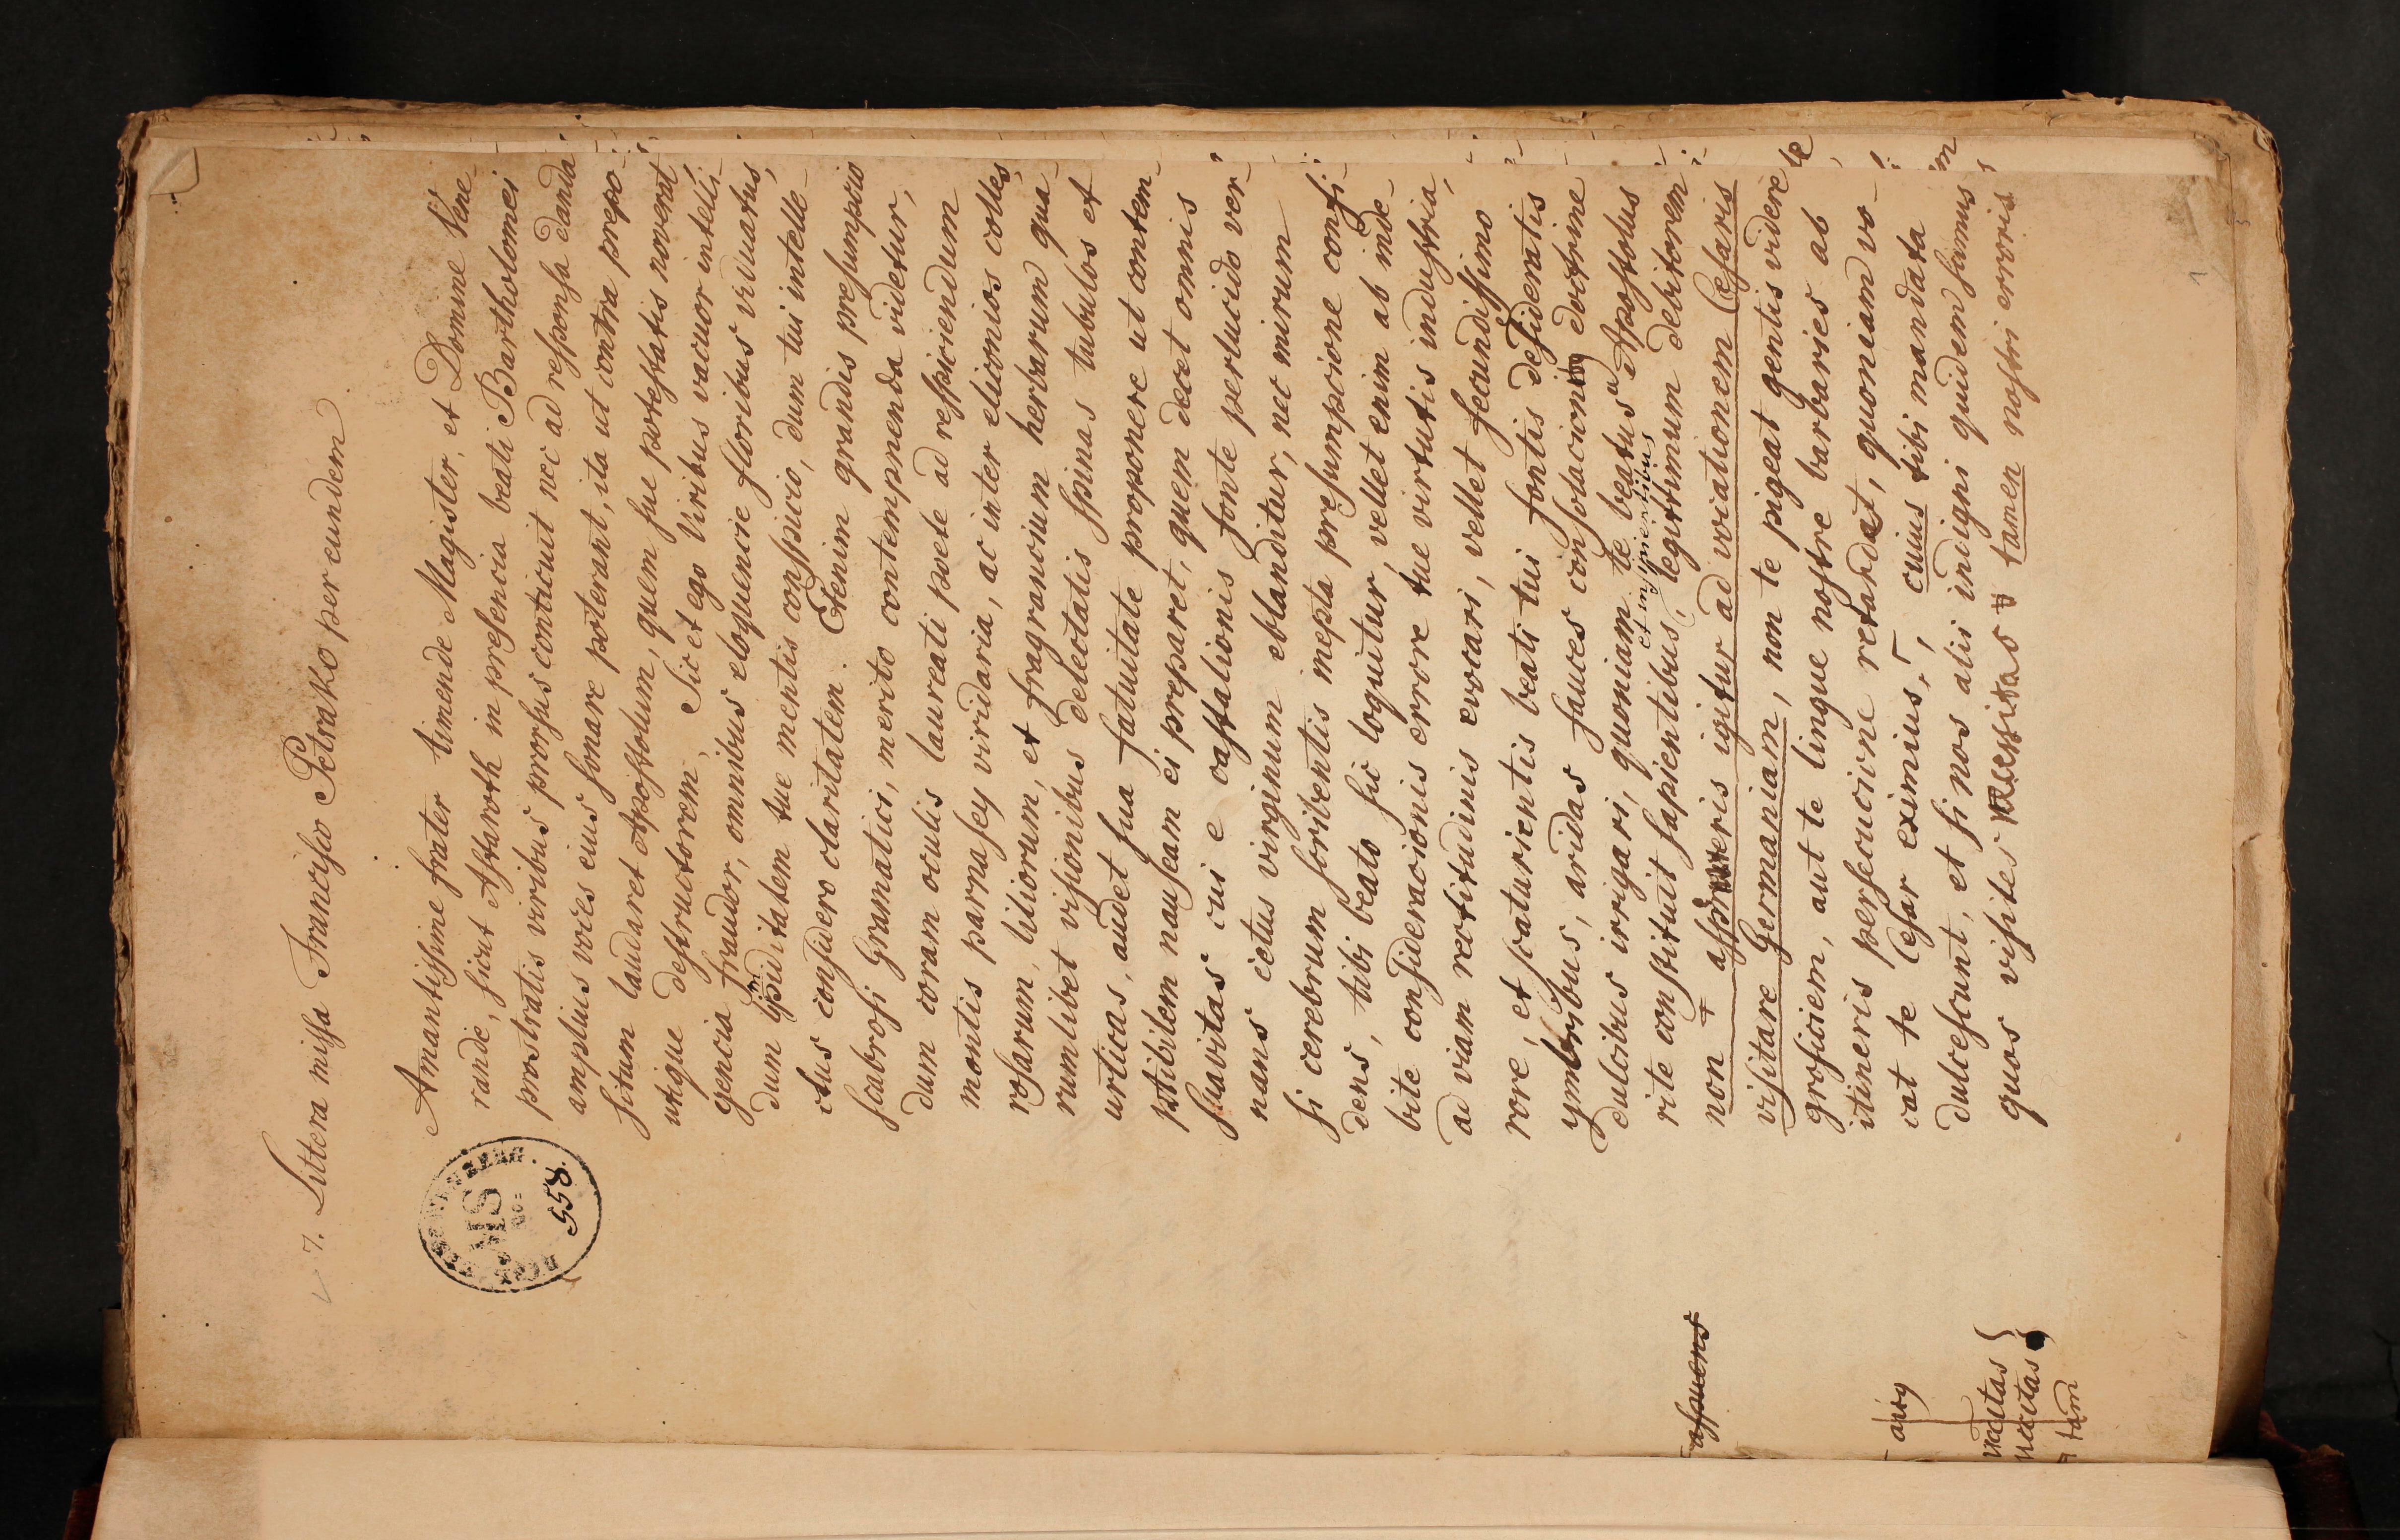 7. Littera missa Francisco Petrako per eundem
Amantissime frater timende Magister, et Domine Vene-
rande, sicut Astaroth in presencia beati Bartholomei
prostratis viribus prorsus conticuit nec ad responsa danda
amplius voces eius sonare poterant, ita ut contra prepo-
situm laudaret Apostolum, quem sue potestatis noverat,
utique destructorem, Sic et ego Viribus vacuor intelli-
gencia fraudor, omnibus eloquencie floribus viduatus,
dum limpiditatem tue mentis conspicio, dum tui intelle-
ctus considero claritatem. Etenim grandis presumpcio
scabrosi Gramatici, merito contempnenda videtur,
dum coram oculis laureati poete ad respiciendum
montis parnasey viridaria, ac inter eliconios colles,
rosarum, liliorum, et fragrancium herbarum qua-
rumlibet visionibus delectatis spinas tubulos et
urticas, audet sua fatuitate proponere ut contem-
ptibilem nauseam ei preparet, quem decet omnis
suavitas cui e castalionis fonte perlucido ver-
nans cetus virginum eblanditur, nec mirum
si cerebrum scribentis inepta presumpcione confi-
dens, tibi beato sic loquitur, vellet enim ab inde-
bite consideracionis errore tue virtutis industria,
ad viam rectitudinis evocari, vellet fecundissimo
rore, et scaturientis beati tui fontis desideratis
ymbribus, aridas fauces consolacionis doctrine
dulcibus irrigari, quoniam te beatus Apostolus
et insipientibus
rite constituit sapientibus, legittimum debitorem
non igitur ad vocationem Cesaris
visitare Germaniam, non te pigeat gentis videre
grossiciem, aut te lingue nostre barbaries ab
itineris persecucione retardet, quoniam vo-
cat te Cesar eximius, cuius tibi mandata
dulcescunt, et si nos alii indigni quidem sumus
quos visites tamen nostri erroris
MS
558.